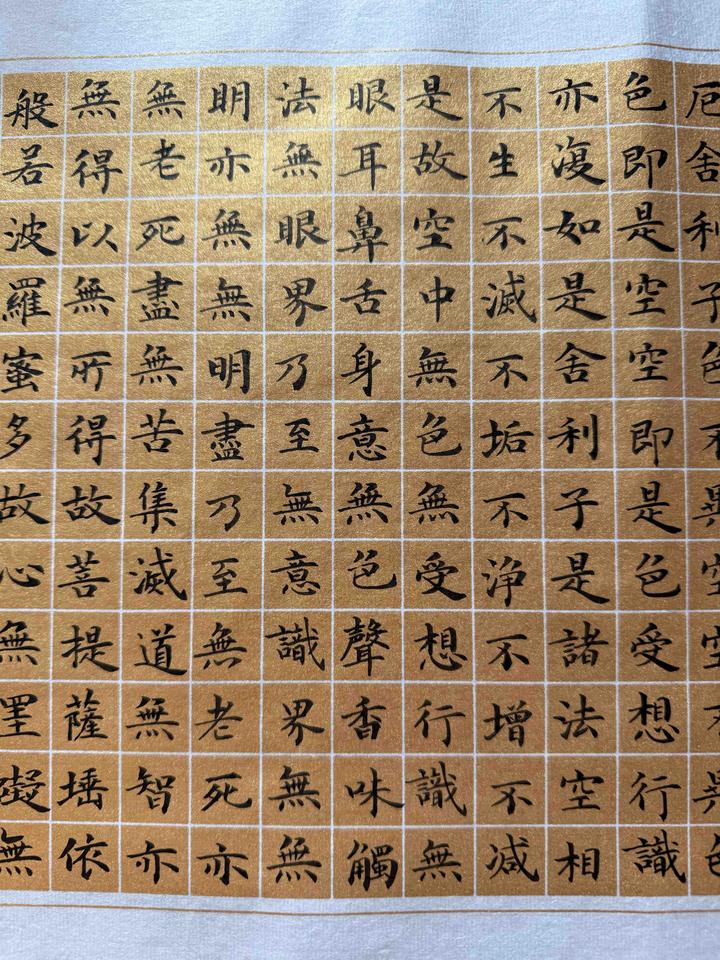 厄舍利子色不異空空不異色
色即是空空即是色受想行識
亦復如是舍利子是諸法空相
不生不滅不垢不浄不增不減
是故空中無色無受想行識無
眼耳鼻舌身意無色聲香味觸
法無眼界乃至無意識界無無
明亦無無明盡乃至無老死亦
無老死盡無苦集滅道無智亦
無得以無所得故菩提薩埵依
般若波羅蜜多故心無罣礙無